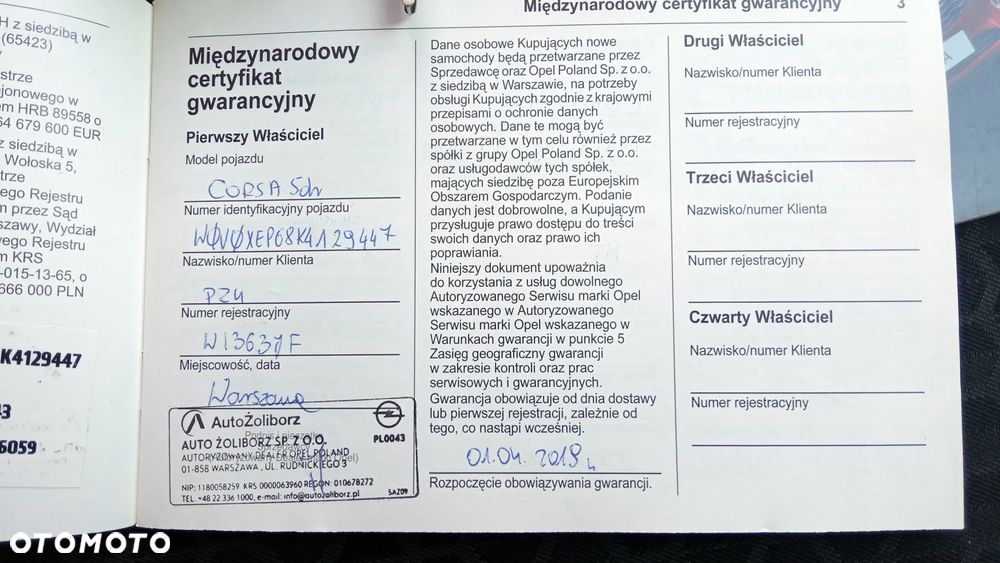 H z siedzibą w
(65423)
estrze
jonowego w
em HRB 89558 o
64 679 600 EUR
z siedzibą w
Wołoska 5,
trze
ego Rejestru
m przez Sąd
szawy, Wydział
wego Rejestru
em KRS
-015-13-65, o
666 000 PLN
K4129447
6059
Międzynarodowy certyfikat gwarancyjny 3
Międzynarodowy
certyfikat
gwarancyjny
Pierwszy Właściciel
Model pojazdu
CORSA 5dr
Numer identyfikacyjny pojazdu
W0V0XEP68K4129447
Nazwisko/numer Klienta
PZU
Numer rejestracyjny
WI3637F
Miejscowość, data
Warszawa
AutoŻoliborz
AUTO ŻOLIBORZ SP. Z O.O.
PL0043
AUTORYZOWANY DEALER OPEL POLAND
01-858 WARSZAWA, UL. RUDNICKIEGO 3
NIP: 1180058259 KRS 0000063960 REGON: 010678272
TEL. +48 22 336 1000, e-mail: info@autozoliborz.pl
SAZ09
Dane osobowe Kupujących nowe
samochody będą przetwarzane przez
Sprzedawcę oraz Opel Poland Sp. z o.o.
z siedzibą w Warszawie, na potrzeby
obsługi Kupujących zgodnie z krajowymi
przepisami o ochronie danych
osobowych. Dane te mogą być
przetwarzane w tym celu również przez
spółki z grupy Opel Poland Sp. z o.o.
oraz usługodawców tych spółek,
mających siedzibę poza Europejskim
Obszarem Gospodarczym. Podanie
danych jest dobrowolne, a Kupującym
przysługuje prawo dostępu do treści
swoich danych oraz prawo ich
poprawiania.
Niniejszy dokument upoważnia
do korzystania z usług dowolnego
Autoryzowanego Serwisu marki Opel
wskazanego w Autoryzowanego
Serwisu marki Opel wskazanego w
Warunkach gwarancji w punkcie 5
Zasięg geograficzny gwarancji
w zakresie kontroli oraz prac
serwisowych i gwarancyjnych.
Gwarancja obowiązuje od dnia dostawy
lub pierwszej rejestracji, zależnie od
tego, co nastąpi wcześniej.
01.04.2019
Rozpoczęcie obowiązywania gwarancji.
Drugi Właściciel
Nazwisko/numer Klienta
Numer rejestracyjny
Trzeci Właściciel
Nazwisko/numer Klienta
Numer rejestracyjny
Czwarty Właściciel
Nazwisko/numer Klienta
Numer rejestracyjny
OTOMOTO